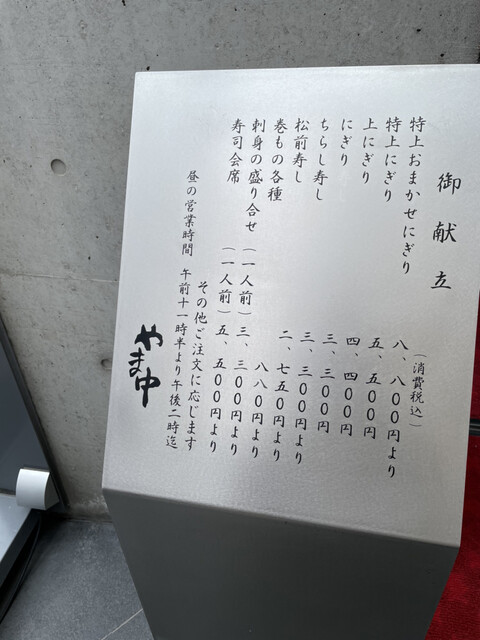 御献立
（消費税込）
特上おまかせにぎり 八、八００円より
特上にぎり 五、五００円
上にぎり 四、四００円
にぎり 三、三００円
ちらし寿し 三、三００円より
松前寿し 二、七五０円より
巻もの各種 八八０円より
刺身の盛り合せ（一人前）三、三００円より
寿司会席（一人前）五、五００円より
その他ご注文に応じます
昼の営業時間 午前十一時半より午後二時迄
やま中